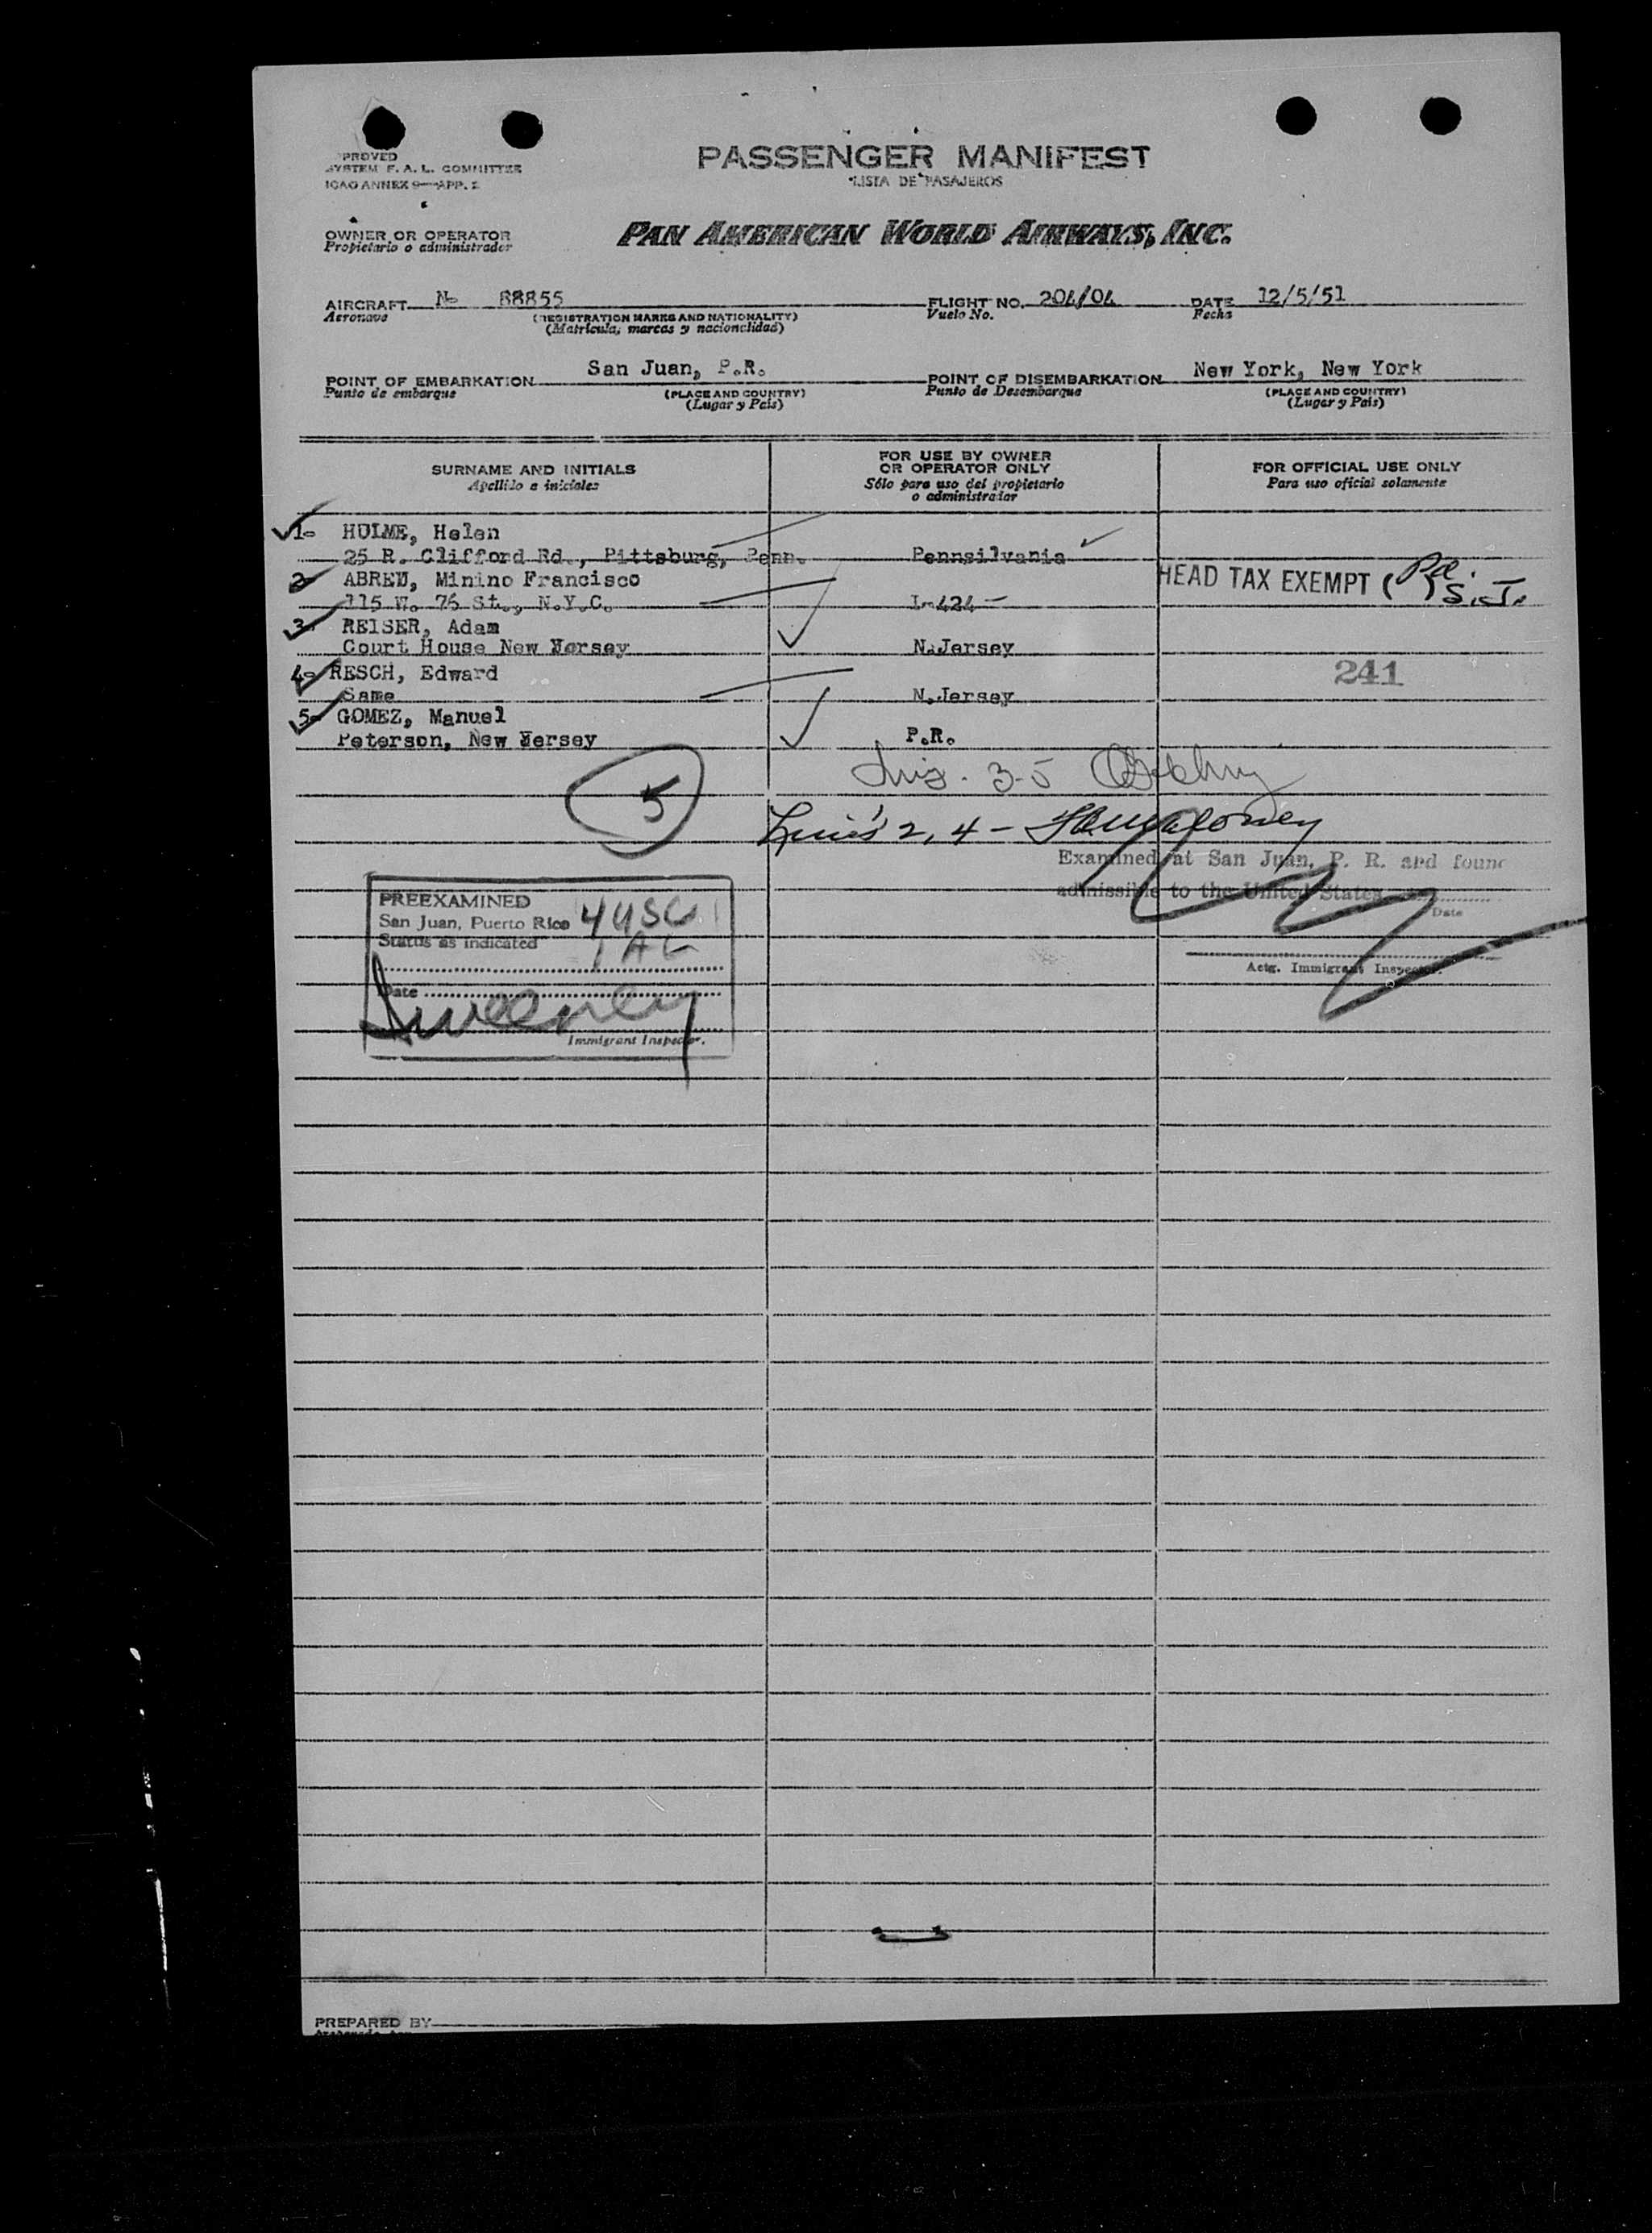 PROVED
SYSTEM F. A. L. COMMITTEE
ICAO ANNEX 9—APP. 2
PASSENGER MANIFEST
LISTA DE PASAJEROS
OWNER OR OPERATOR
Propietario o administrador
PAN AMERICAN WORLD AIRWAYS, INC.
AIRCRAFT N- 88855 FLIGHT NO. 204/04 DATE 12/5/51
Aeronave (REGISTRATION MARKS AND NATIONALITY) Vuelo No. Fecha
(Matrícula, marcas y nacionalidad)
POINT OF EMBARKATION San Juan, P.R. POINT OF DISEMBARKATION New York, New York
Punto de embarque (PLACE AND COUNTRY) Punto de Desembarque (PLACE AND COUNTRY)
(Lugar y País) (Lugar y País)
SURNAME AND INITIALS
Apellido e iniciales
FOR USE BY OWNER
OR OPERATOR ONLY
Sólo para uso del propietario
o administrador
FOR OFFICIAL USE ONLY
Para uso oficial solamente
1- HULME, Helen
25 R. Clifford Rd., Pittsburg, Penn. Pennsilvania
2- ABREU, Minino Francisco
HEAD TAX EXEMPT (Pd.) S.J.
115 W. 76 St., N.Y.C. I-424-
3- REISER, Adam
Court House New Jersey N.Jersey
4- RESCH, Edward 241
Same N.Jersey
5- GOMEZ, Manuel
Peterson, New Jersey P.R.
3-5
5
2, 4 -
Examined at San Juan, P. R. and found
admissible to the United States
Date
Actg. Immigrant Inspector.
PREEXAMINED
San Juan, Puerto Rico 4 USC
Status as indicated 1 AL
Date
Sweeney
Immigrant Inspector.
PREPARED BY